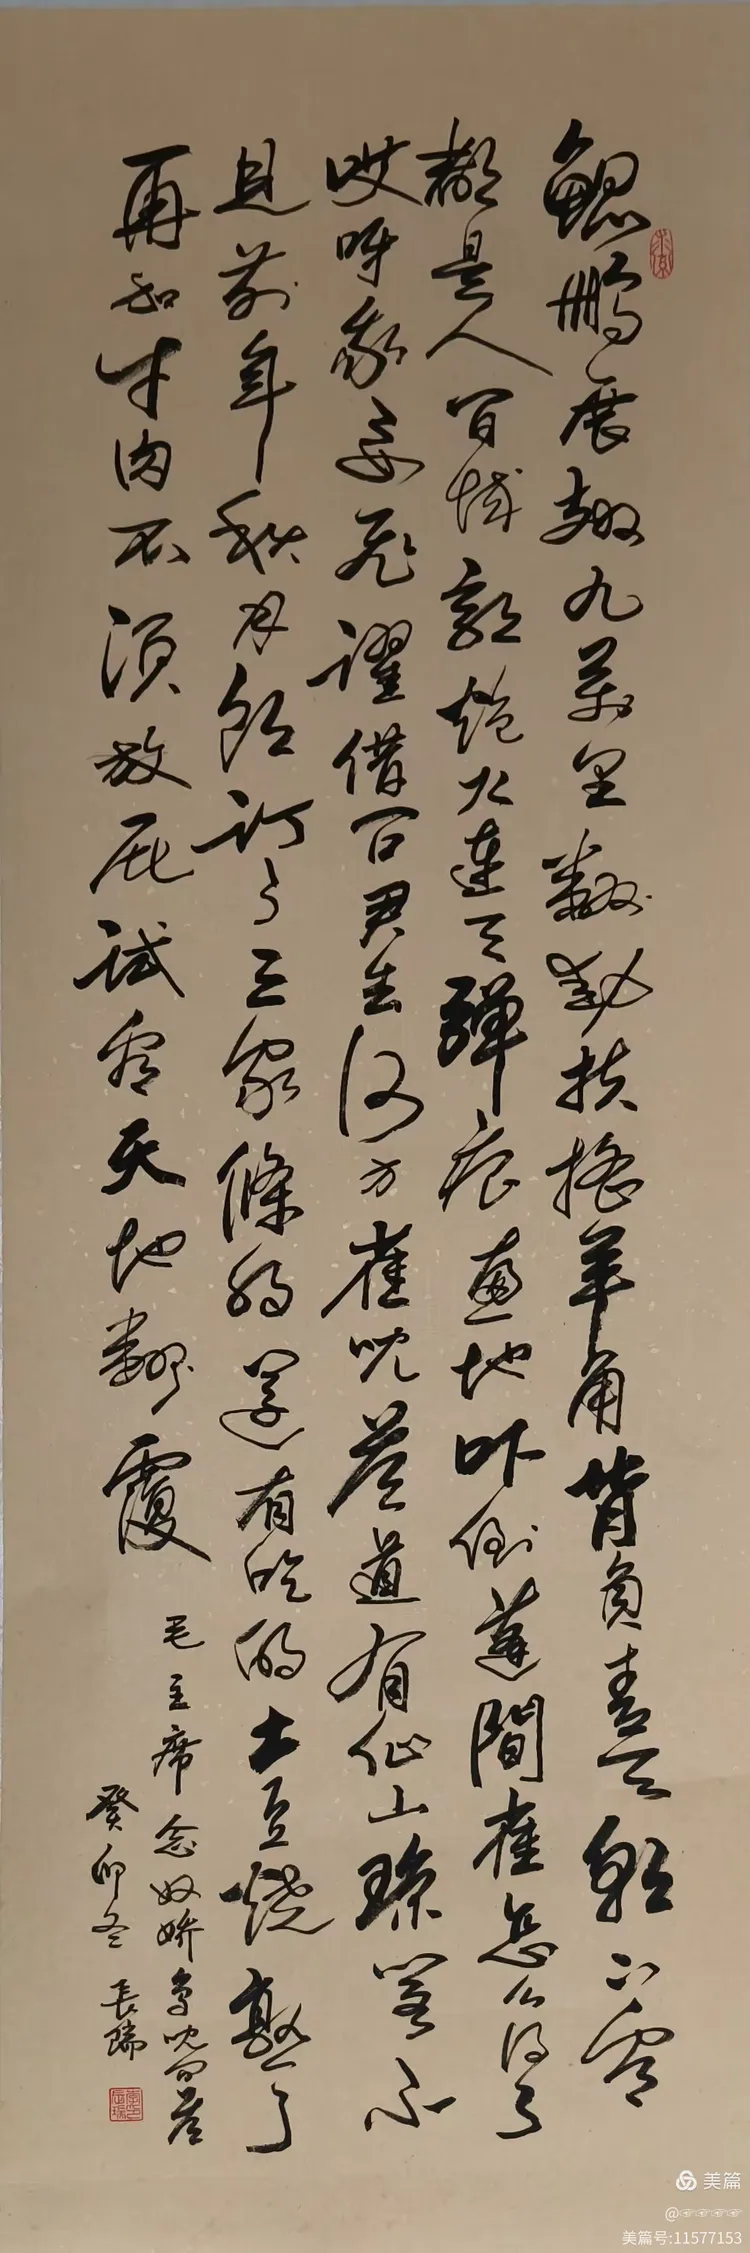 鲲鹏展翅九万里翻动扶摇羊角背负青天朝下看
都是人间城郭炮火连天弹痕遍地吓倒蓬间雀怎么得了
哎呀我要飞跃借问君去何方雀儿答道有仙山琼阁不
见前年秋月朗订了三家條约还有吃的土豆烧熟了
再加牛肉不须放屁试看天地翻覆
毛主席念奴娇鸟儿问答
癸卯冬 長瑞
美篇
@☞☞☞☞
美篇号:11577153